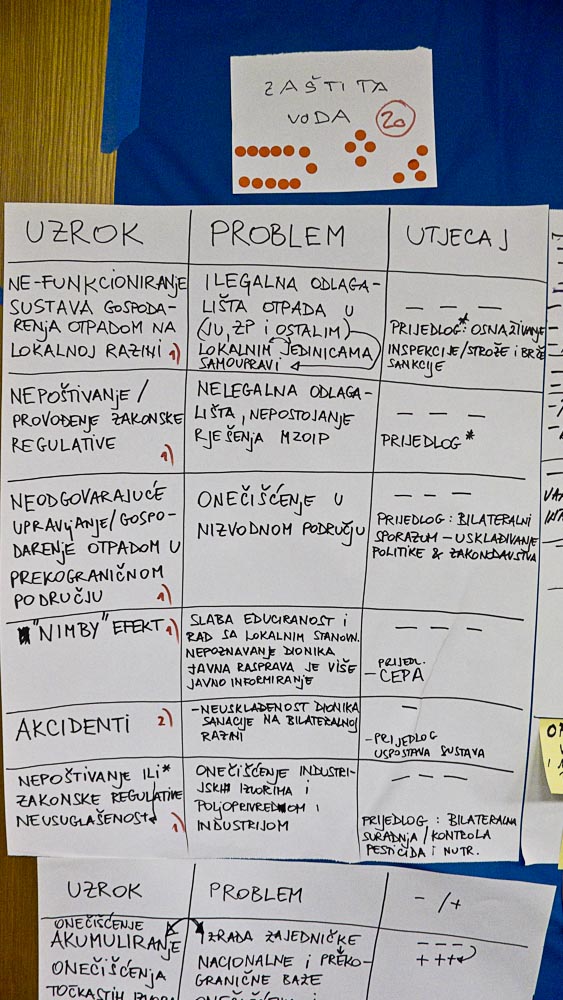 ZAŠTITA
VODA 20
UZROK
PROBLEM
UTJECAJ
NE-FUNKCIONIRANJE
SUSTAVA GOSPODA-
RENJA OTPADOM NA
LOKALNOJ RAZINI 1)
ILEGALNA ODLAGA-
LIŠTA OTPADA U
(JU, ZP I OSTALIM)
LOKALNIM JEDINICAMA
SAMOUPRAVI
— — —
PRIJEDLOG*: OSNAŽIVANJE
INSPEKCIJE/STROŽE I BRŽE
SANKCIJE
NEPOŠTIVANJE/
PROVOĐENJE ZAKONSKE
REGULATIVE
1)
NELEGALNA ODLAGA-
LIŠTA, NEPOSTOJANJE
RJEŠENJA MZOIP
— — —
PRIJEDLOG*
NEODGOVARAJUĆE
UPRAVLJANJE/GOSPO-
DARENJE OTPADOM U
PREKOGRANIČNOM
PODRUČJU 1)
ONEČIŠĆENJE U
NIZVODNOM PODRUČJU
— — —
PRIJEDLOG: BILATERALNI
SPORAZUM – USKLAĐIVANJE
POLITIKE & ZAKONODAVSTVA
"NIMBY" EFEKT 1)
SLABA EDUCIRANOST I
RAD SA LOKALNIM STANOVN.
NEPOZNAVANJE DIONIKA
JAVNA RASPRAVA JE VIŠE
JAVNO INFORMIRANJE
— — —
PRIJEDL.
– CEPA
AKCIDENTI 2)
– NEUSKLAĐENOST DIONIKA
SANACIJE NA BILATERALNOJ
RAZINI
—
– PRIJEDLOG
USPOSTAVA SUSTAVA
NEPOŠTIVANJE ILI*
ZAKONSKE REGULATIVE
NEUSUGLAŠENOST
1)
ONEČIŠĆENJE INDUSTRI-
JSKIH IZVORIMA I
POLJOPRIVREDNOM I
INDUSTRIJOM
— — —
PRIJEDLOG: BILATERALNA
SURADNJA/KONTROLA
PESTICIDA I NUTR.
UZROK
PROBLEM
- / +
ONEČIŠĆENJE
AKUMULIRANJE
ONEČIŠĆENJA
TOČKASTIH IZVORA
IZRADA ZAJEDNIČKE
NACIONALNE I PREKO-
GRANIČNE BAZE
— — —
+ + +